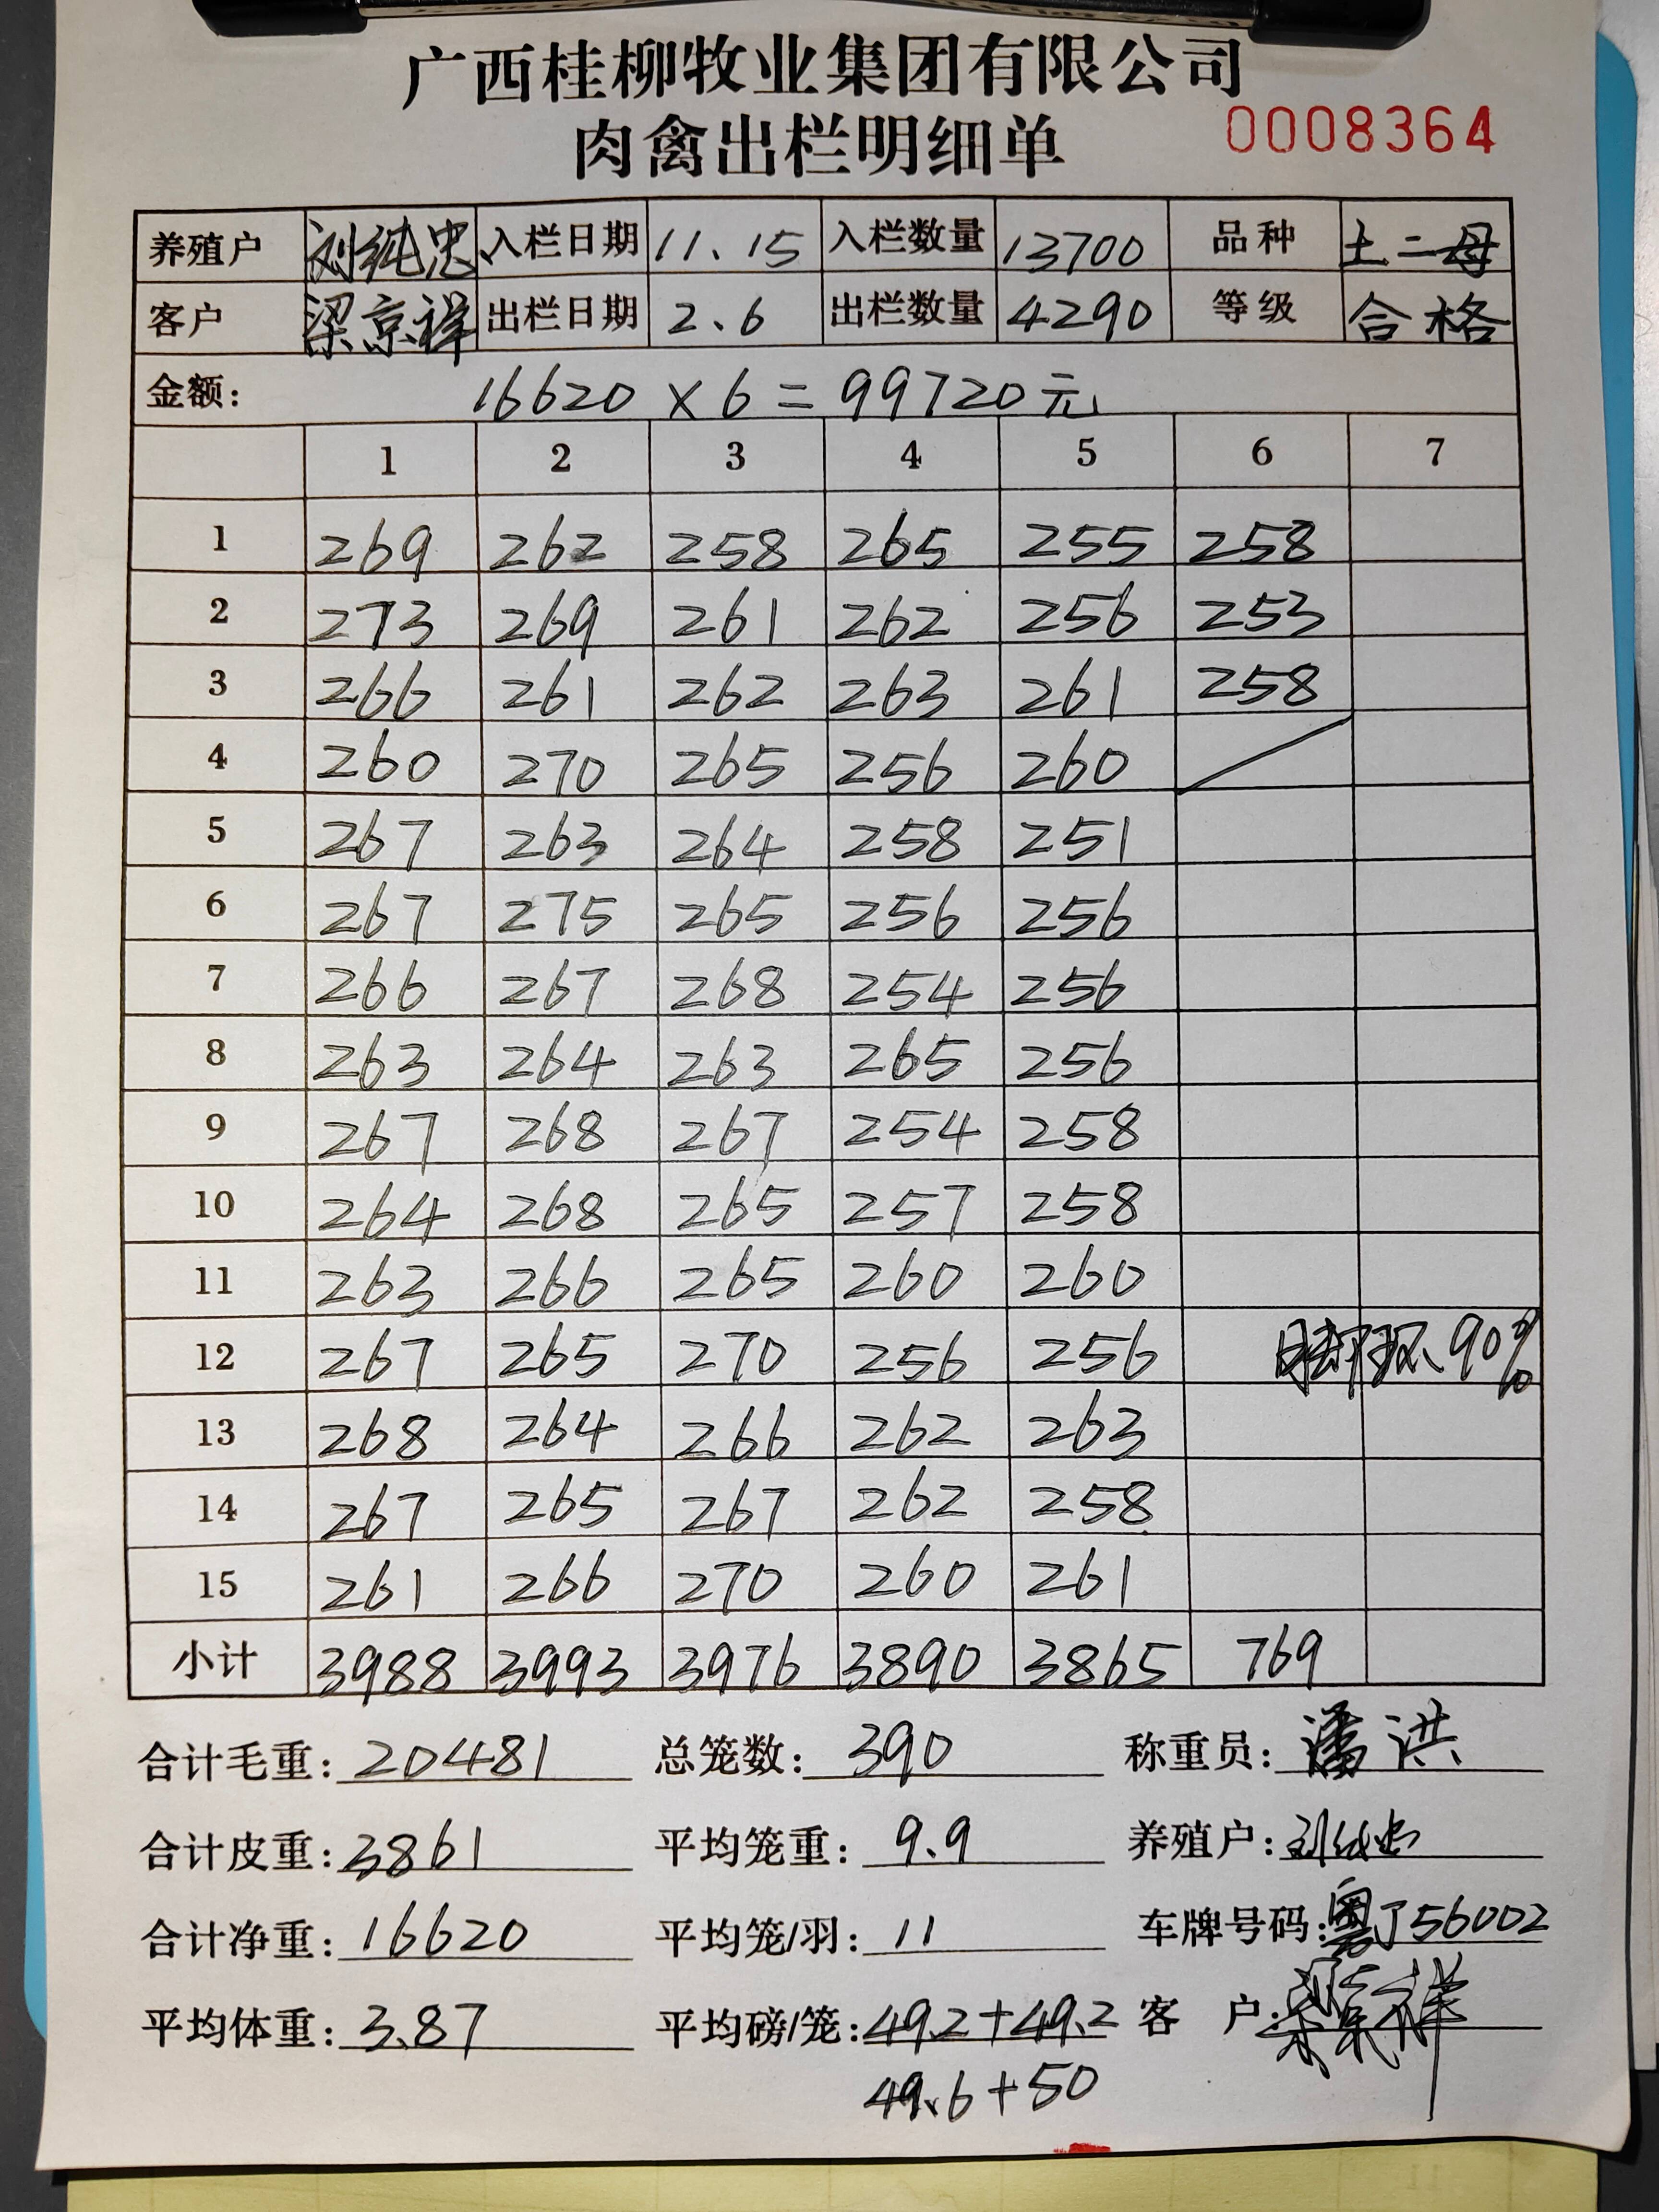 广西桂柳牧业集团有限公司
肉禽出栏明细单 0008364
养殖户 刘纯忠 入栏日期 11.15 入栏数量 13700 品种 土二母
客户 梁京祥 出栏日期 2.6 出栏数量 4290 等级 合格
金额: 16620 × 6 = 99720元
1 2 3 4 5 6 7
1 269 262 258 265 255 258
2 273 269 261 262 256 253
3 266 261 262 263 261 258
4 260 270 265 256 260
5 267 263 264 258 251
6 267 275 265 256 256
7 266 267 268 254 256
8 263 264 263 265 256
9 267 268 267 254 258
10 264 268 265 257 258
11 263 266 265 260 260
12 267 265 270 256 256 脚环90%
13 268 264 266 262 263
14 267 265 267 262 258
15 261 266 270 260 261
小计 3988 3993 3976 3890 3865 769
合计毛重: 20481 总笼数: 390 称重员: 潘洪
合计皮重: 3861 平均笼重: 9.9 养殖户: 刘纯忠
合计净重: 16620 平均笼/羽: 11 车牌号码: 粤J56002
平均体重: 3.87 平均磅/笼: 49.2+49.2 客 户: 梁京祥
49.6+50